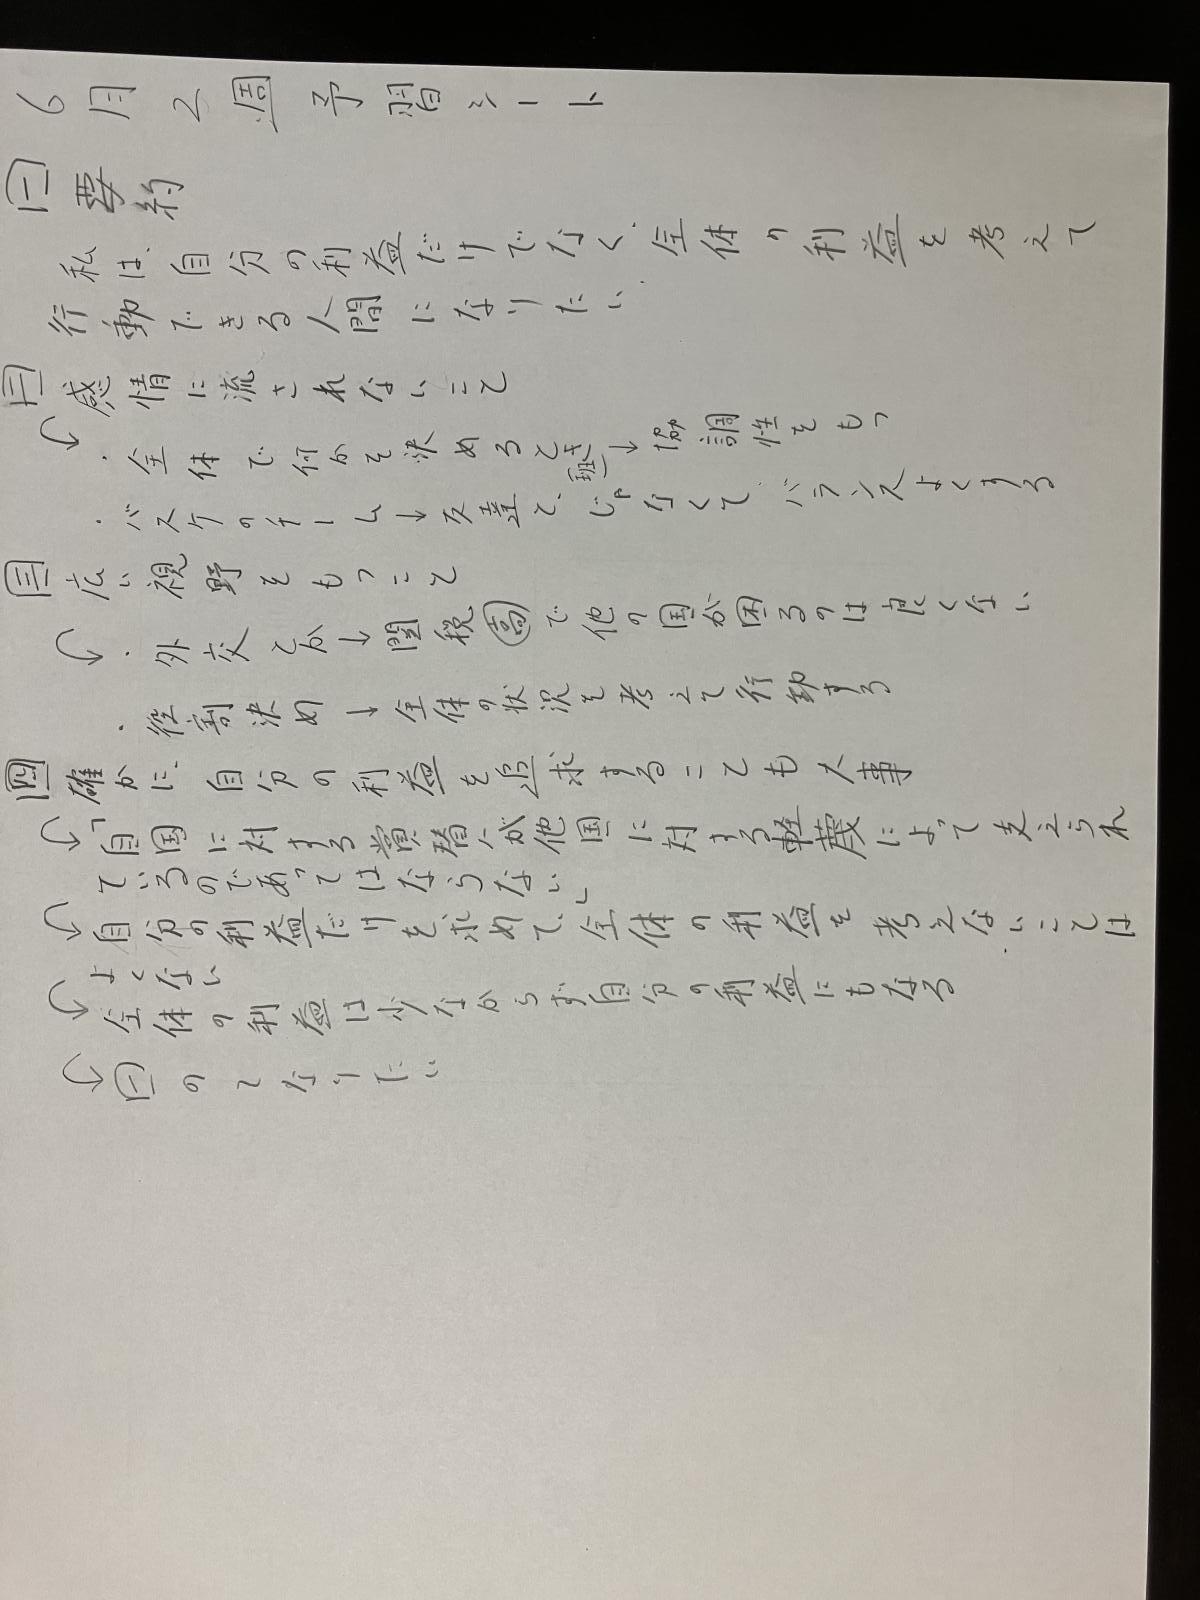 6月2週予習シート
一 要約
私は、自分の利益だけでなく、全体の利益を考えて
行動できる人間になりたい。
二 感情に流されないこと
・全体で何かを決めるとき(班)→協調性をもつ
・バスケのチーム→友達で、じゃなくて、バランスよくする
三 広い視野をもつこと
・外交とか→関税高で他の国が困るのは良くない
・役割決め→全体の状況を考えて行動する
四 確かに、自分の利益を追求することも大事
「自国に対する賞賛が他国に対する軽蔑によって支えられ
ているのであってはならない」
自分の利益だけを求めて、全体の利益を考えないことは
よくない
全体の利益は少なからず自分の利益にもなる
一のてなりたい